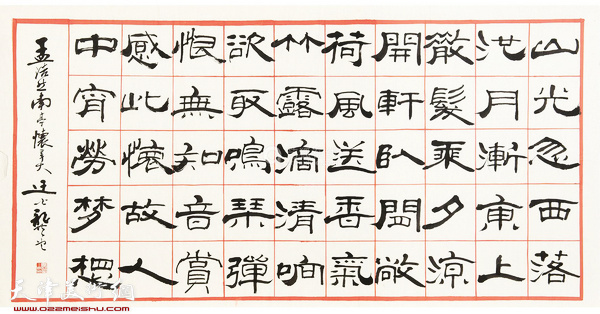 山光忽西落
池月漸東上
散髮乘夕涼
開軒臥閑敞
荷風送香氣
竹露滴清响
欲取鳴琴彈
恨無知音賞
感此懷故人
中宵勞梦想
孟浩然南亭懷辛大
天津美术网
www.022meishu.com